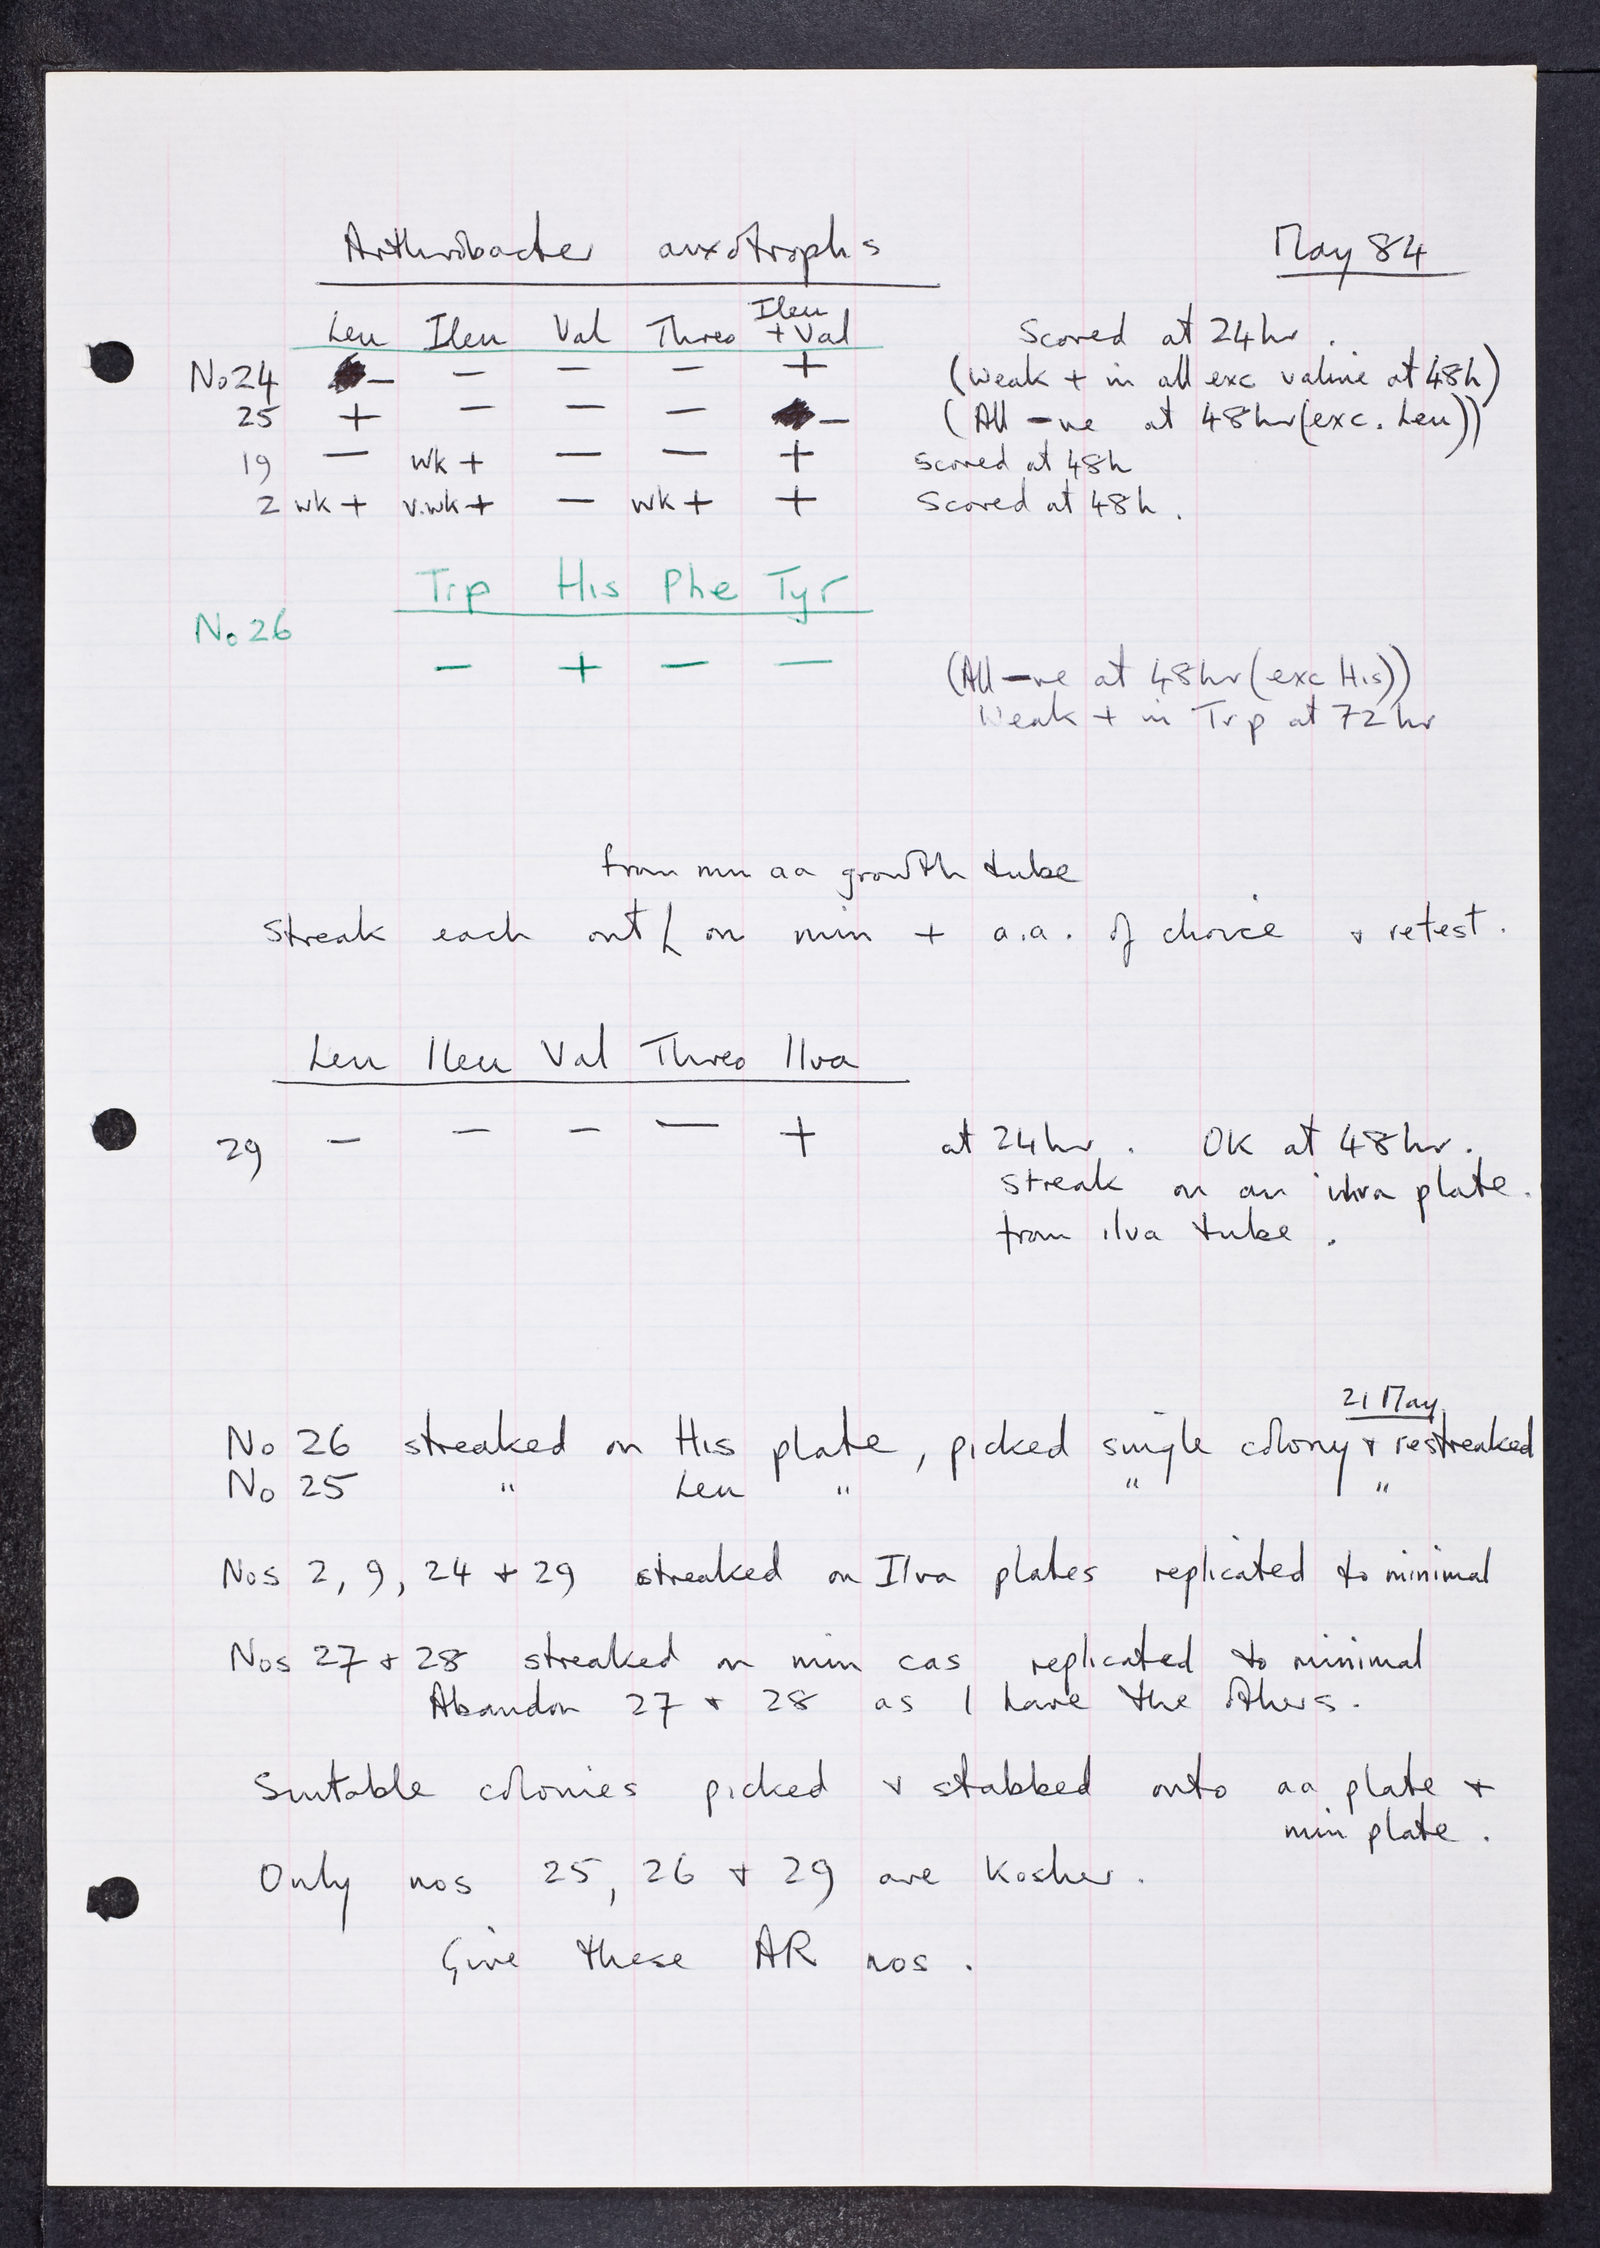 Arthrobacter auxotrophs May 84
Leu Ileu Val Threo Ileu + Val Scored at 24hr.
No 24 – – – – + (Weak + in all exc valine at 48h)
25 + – – – – (All –ve at 48hr (exc. Leu))
19 – wk + – – + Scored at 48h
2 wk + v.wk + – wk + + Scored at 48h.
Trp His Phe Tyr
No 26
– + – – (All –ve at 48hr (exc His))
Weak + in Trp at 72hr
from min aa growth tube
Streak each out on min + a.a. of choice & retest.
Leu Ileu Val Threo Ilva
29 – – – – + at 24hr. OK at 48hr.
streak on an plate.
from ilva tube.
21 May
No 26 streaked on His plate, picked single colony & restreaked
No 25 " Leu " " "
Nos 2, 9, 24 + 29 streaked on Ilva plates replicated to minimal
Nos 27 + 28 streaked on min cas replicated to minimal
Abandon 27 + 28 as I have the others.
Suitable colonies picked & stabbed onto aa plate +
min plate.
Only nos 25, 26 + 29 are Kosher.
Give these AR nos.